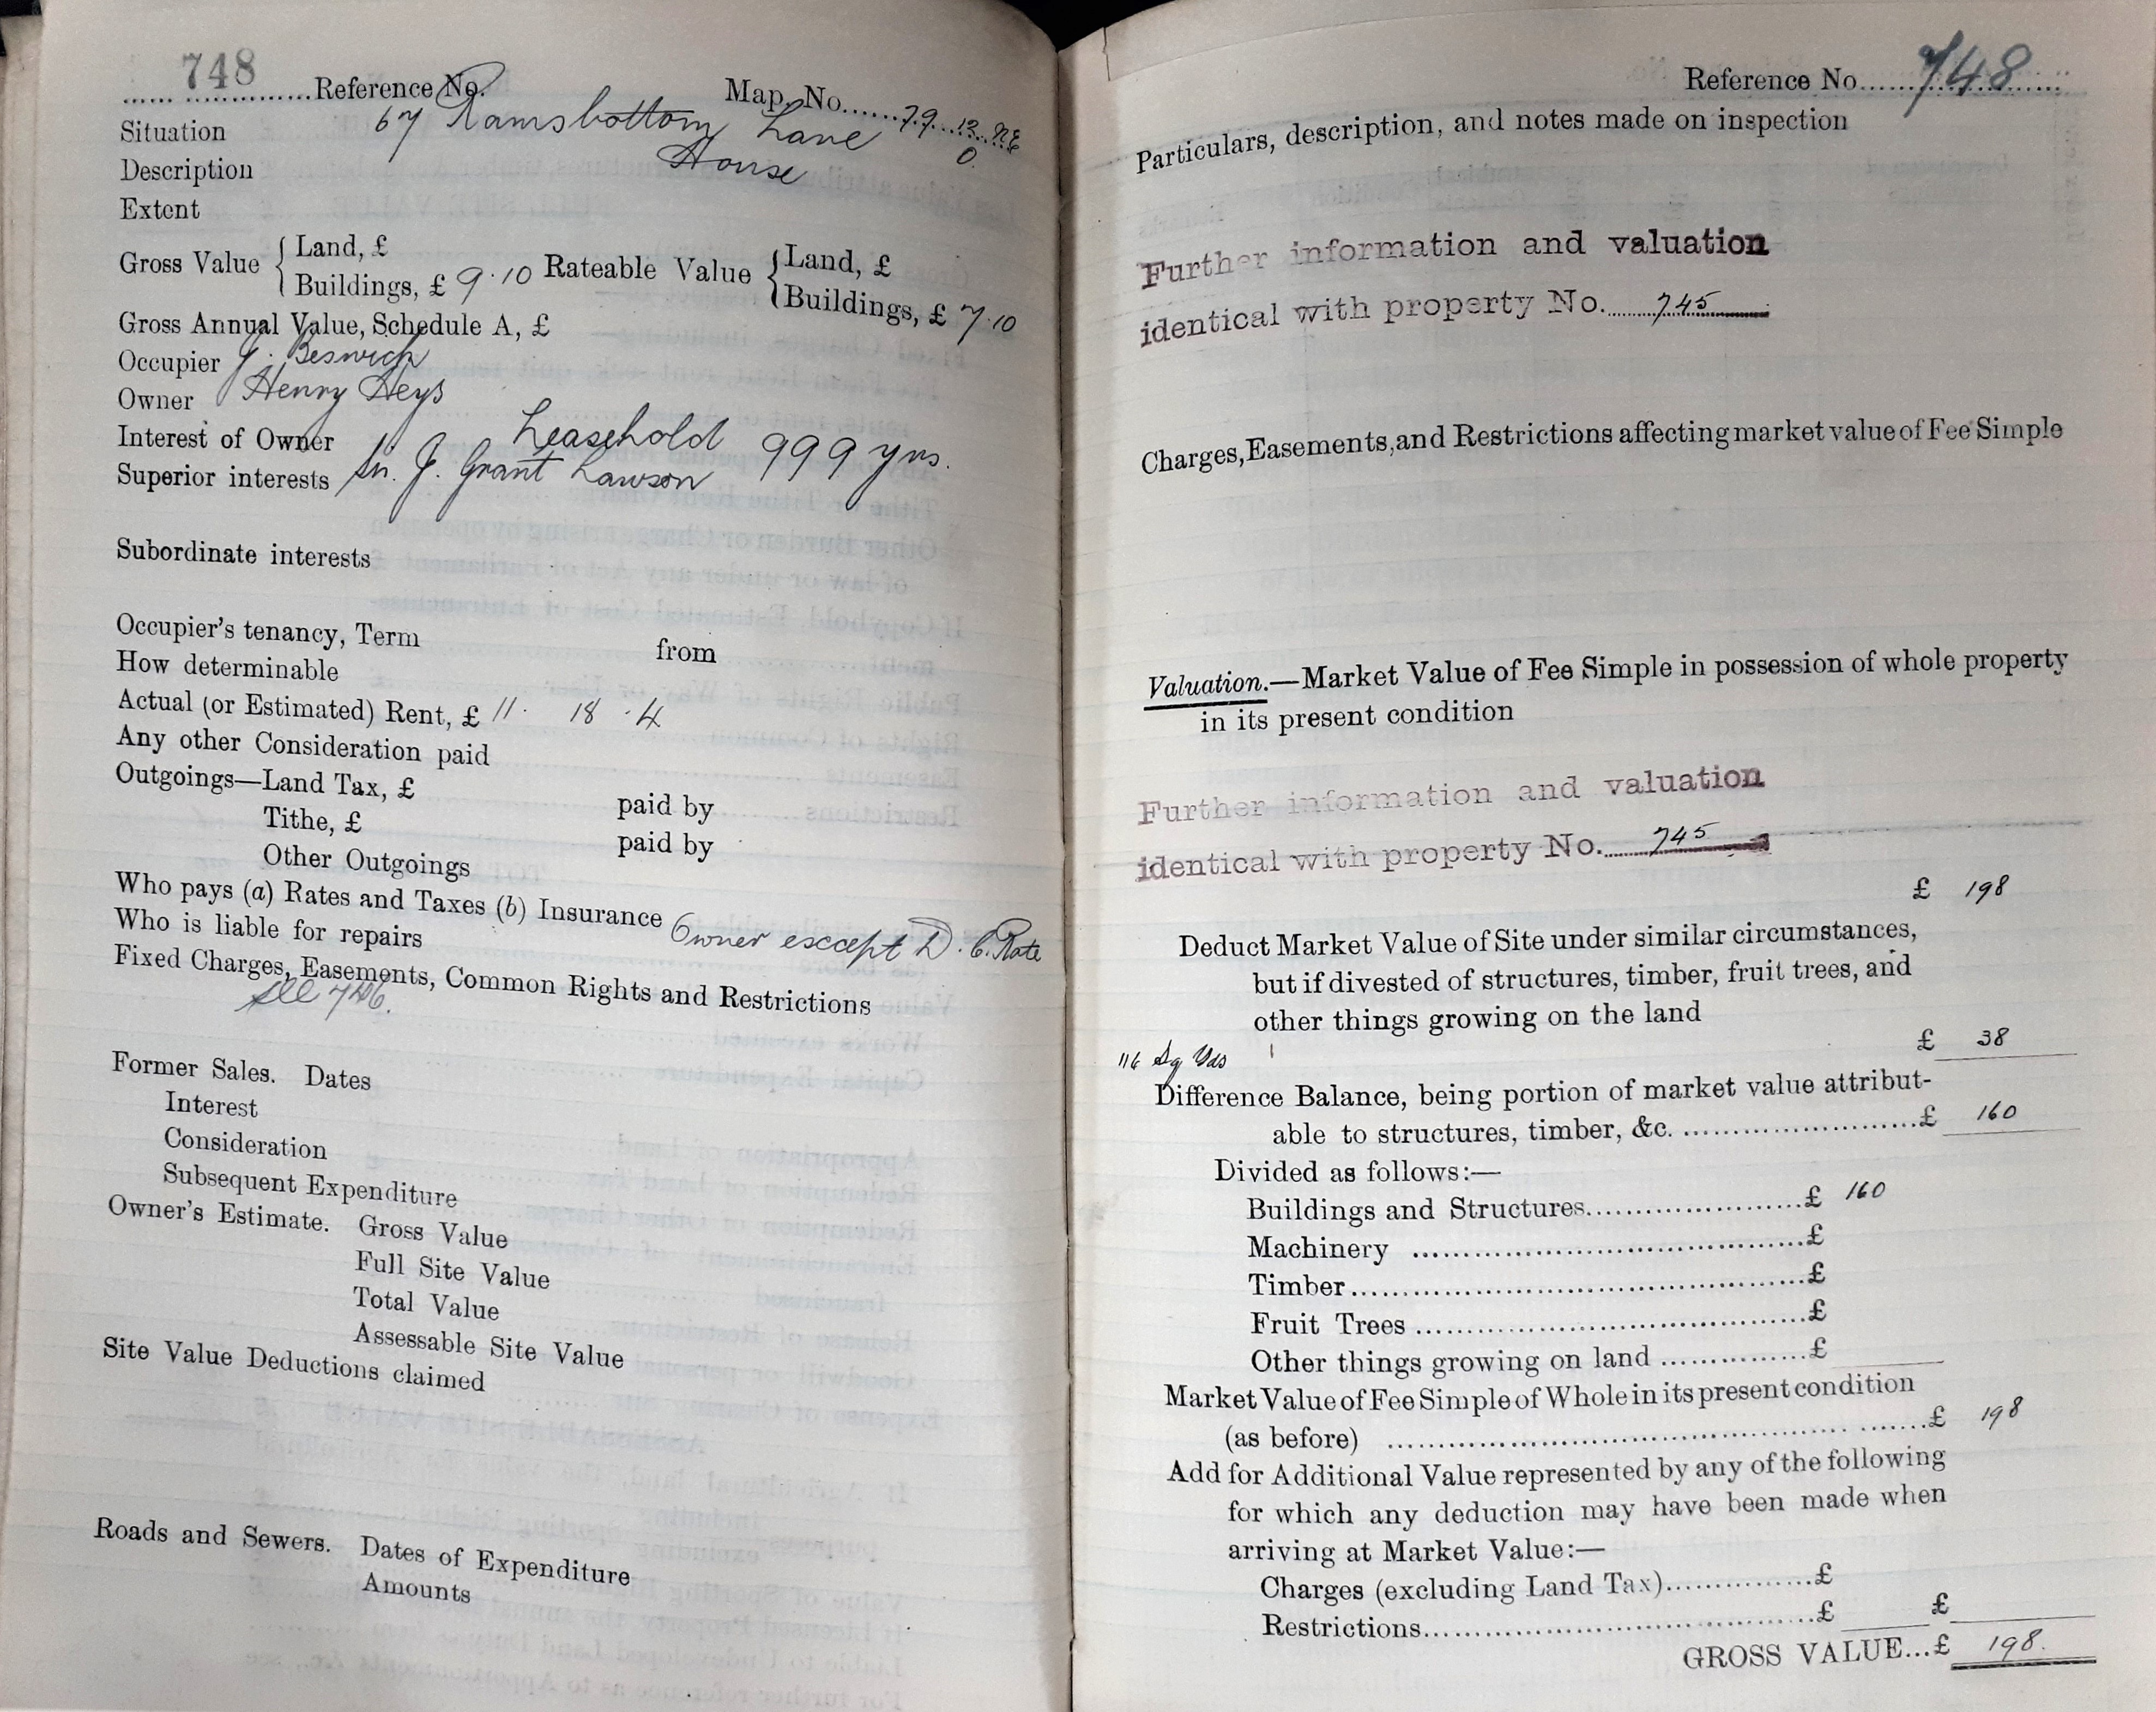 748 Reference No. Map. No. 79.12.NE
0.
Situation 67 Ramsbottom Lane
Description House
Extent
Gross Value { Land, £
Buildings, £ 9.10 Rateable Value { Land, £
Buildings, £ 7.10
Gross Annual Value, Schedule A, £
Occupier J. Beswick
Owner Henry Heys
Interest of Owner Leasehold 999 yrs.
Superior interests Sir. J. Grant Lawson
Subordinate interests
Occupier's tenancy, Term from
How determinable
Actual (or Estimated) Rent, £ 11. 18.4
Any other Consideration paid
Outgoings—Land Tax, £ paid by
Tithe, £ paid by
Other Outgoings
Who pays (a) Rates and Taxes (b) Insurance Owner except D.C. Rate
Who is liable for repairs
Fixed Charges, Easements, Common Rights and Restrictions
See 746.
Former Sales. Dates
Interest
Consideration
Subsequent Expenditure
Owner's Estimate. Gross Value
Full Site Value
Total Value
Assessable Site Value
Site Value Deductions claimed
Roads and Sewers. Dates of Expenditure
Amounts
Reference No. 748
Particulars, description, and notes made on inspection
Further information and valuation
identical with property No. 745
Charges, Easements, and Restrictions affecting market value of Fee Simple
Valuation.—Market Value of Fee Simple in possession of whole property
in its present condition
Further information and valuation
identical with property No. 745
£ 198
Deduct Market Value of Site under similar circumstances,
but if divested of structures, timber, fruit trees, and
other things growing on the land
£ 38
116 Sq Yds
Difference Balance, being portion of market value attribut-
able to structures, timber, &c. £ 160
Divided as follows:—
Buildings and Structures £ 160
Machinery £
Timber £
Fruit Trees £
Other things growing on land £
Market Value of Fee Simple of Whole in its present condition
(as before) £ 198
Add for Additional Value represented by any of the following
for which any deduction may have been made when
arriving at Market Value:—
Charges (excluding Land Tax) £
Restrictions £ £
GROSS VALUE...£ 198.